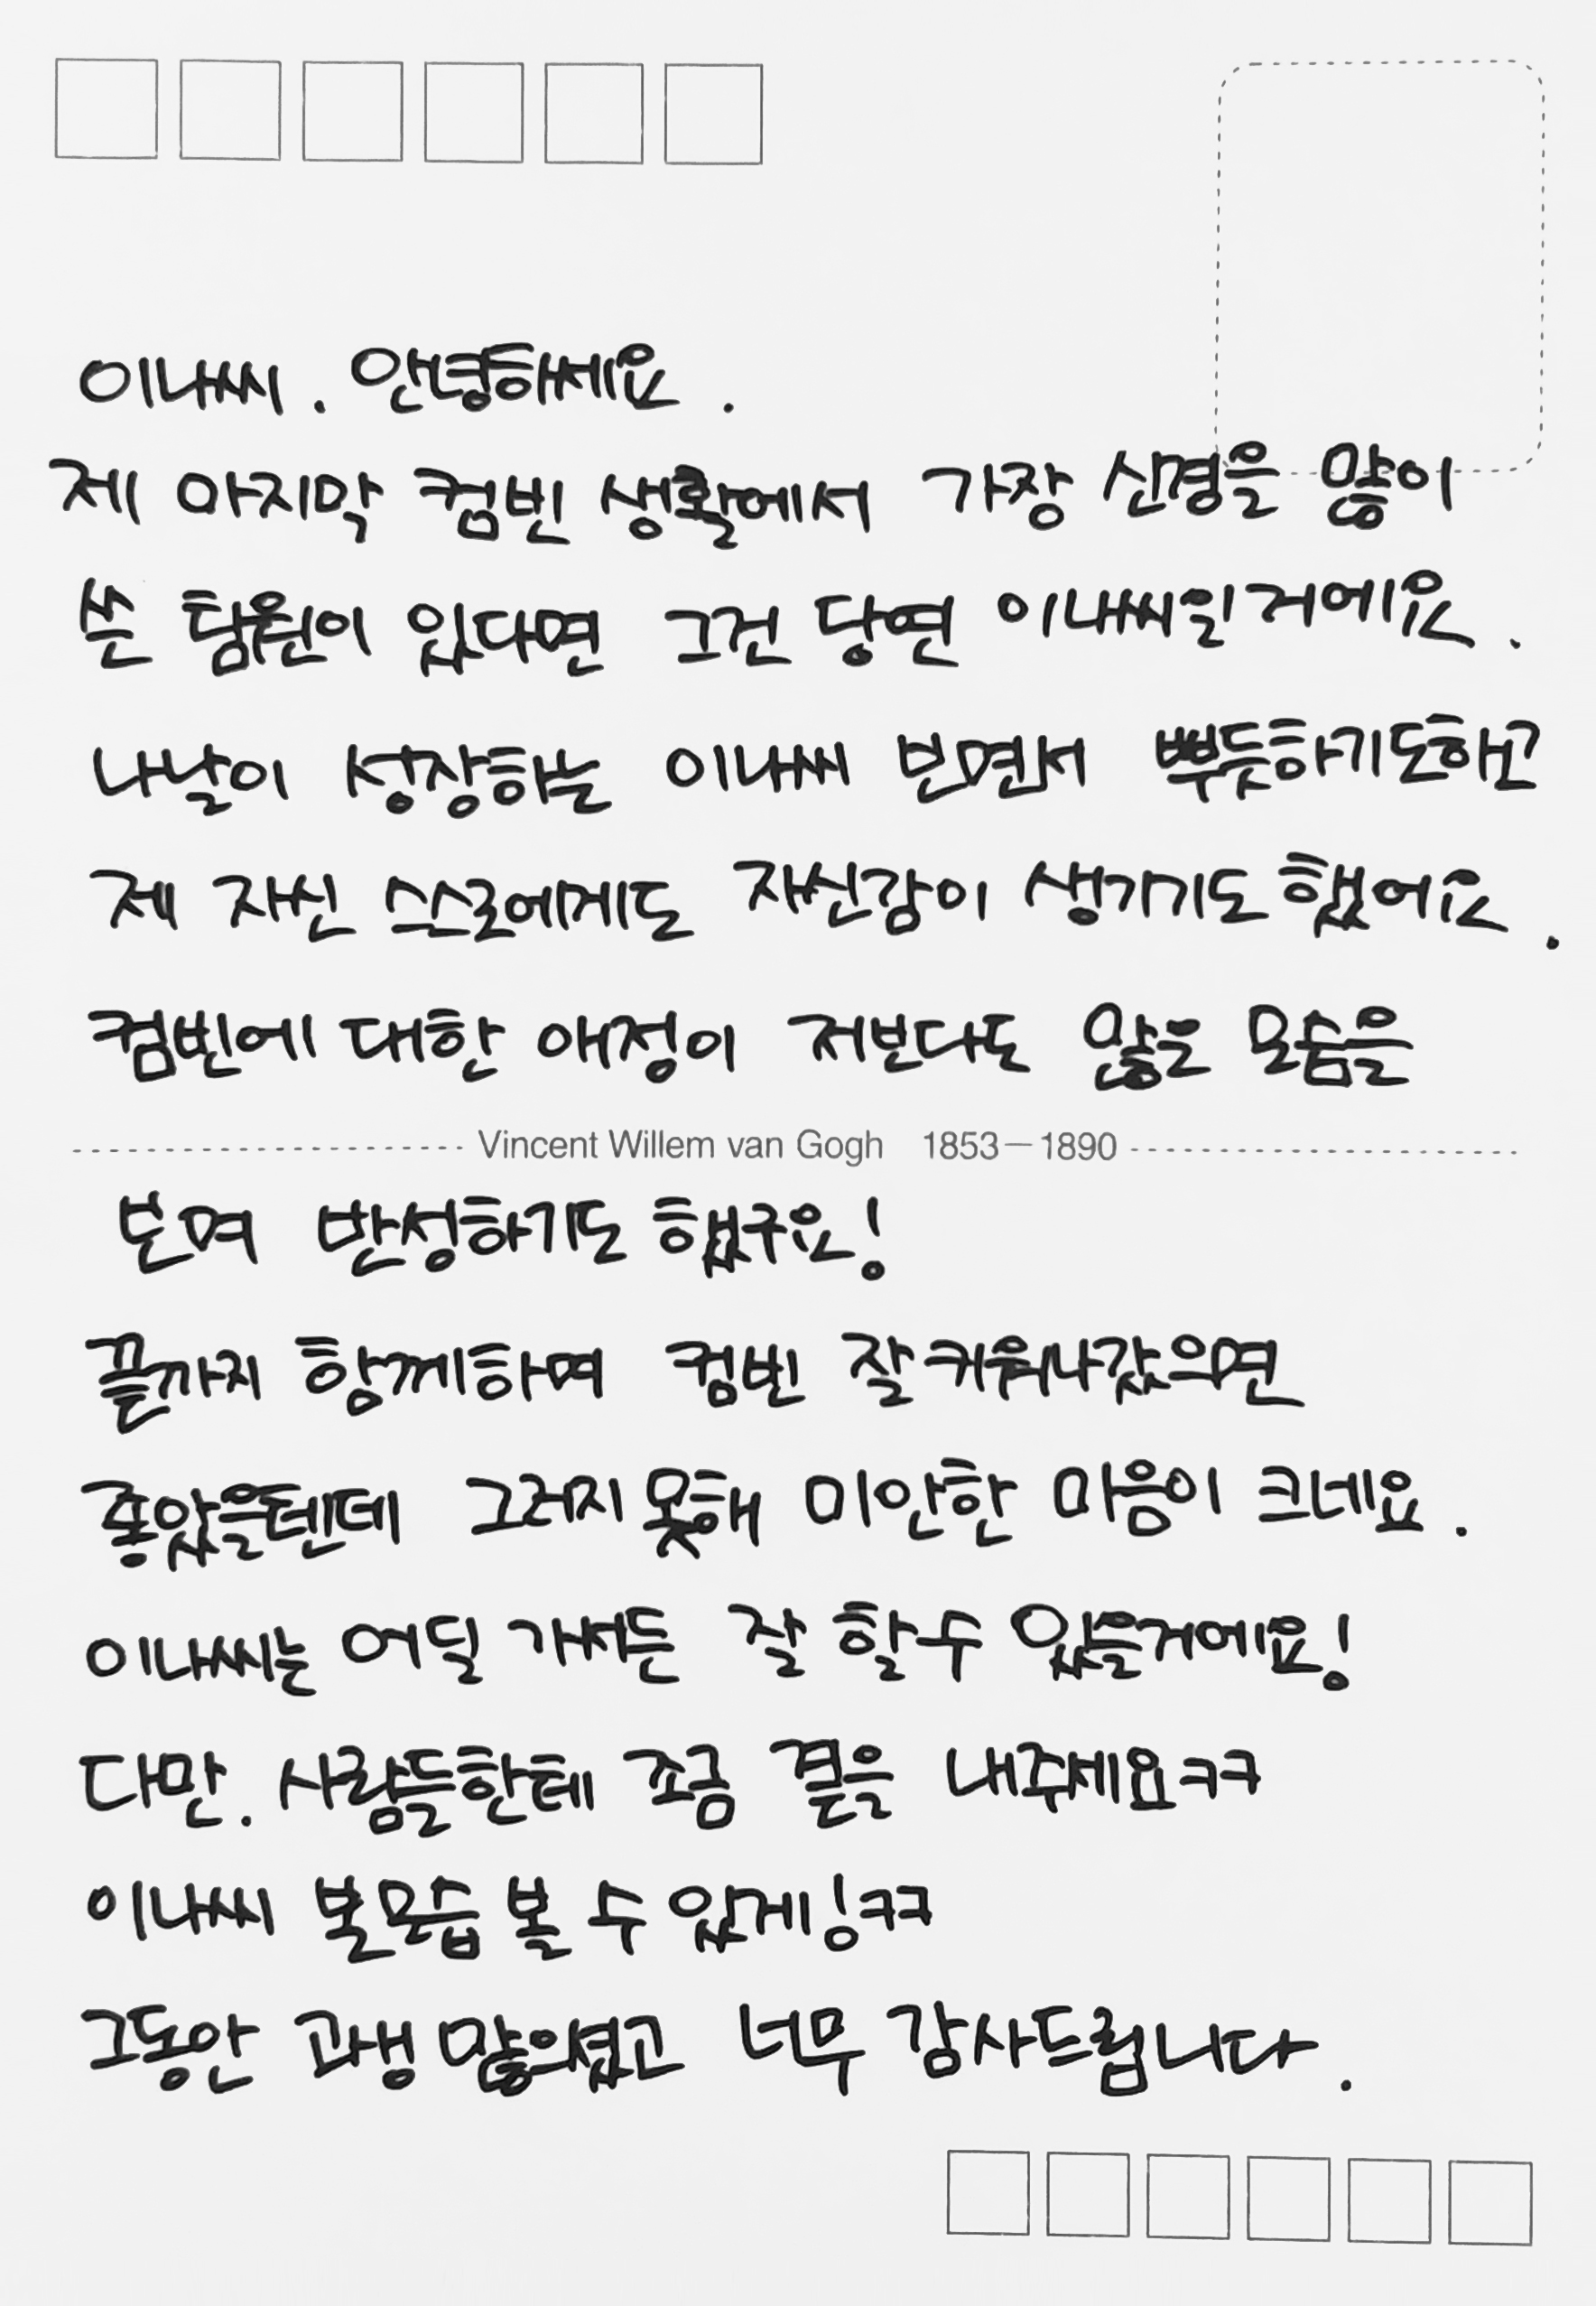 이나씨. 안녕하세요.
제 마지막 컴빈 생활에서 가장 신경을 많이
쓴 팀원이 있다면 그건 당연 이나씨일거에요.
나날이 성장하는 이나씨 보면서 뿌듯하기도하고
제 자신 스스로에게도 자신감이 생기기도 했어요.
컴빈에 대한 애정이 저보다도 많은 모습을
보며 반성하기도 했구요!
Vincent Willem van Gogh 1853—1890
끝까지 함께하며 컴빈 잘 키워나갔으면
좋았을텐데 그러지못해 미안한 마음이 크네요.
이나씨는 어딜 가서든 잘 할수 있을거에요!
다만. 사람들한테 조금 곁을 내주세요ㅋㅋ
이나씨 본모습 볼 수 있게!ㅋㅋ
그동안 고생 많으셨고 너무 감사드립니다.